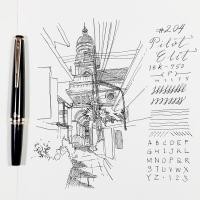 #204
Pilot
Elit
18K-750
(F)
ABCDEF
GHIJKL
MNOPQR
STUVWX
YZ·123